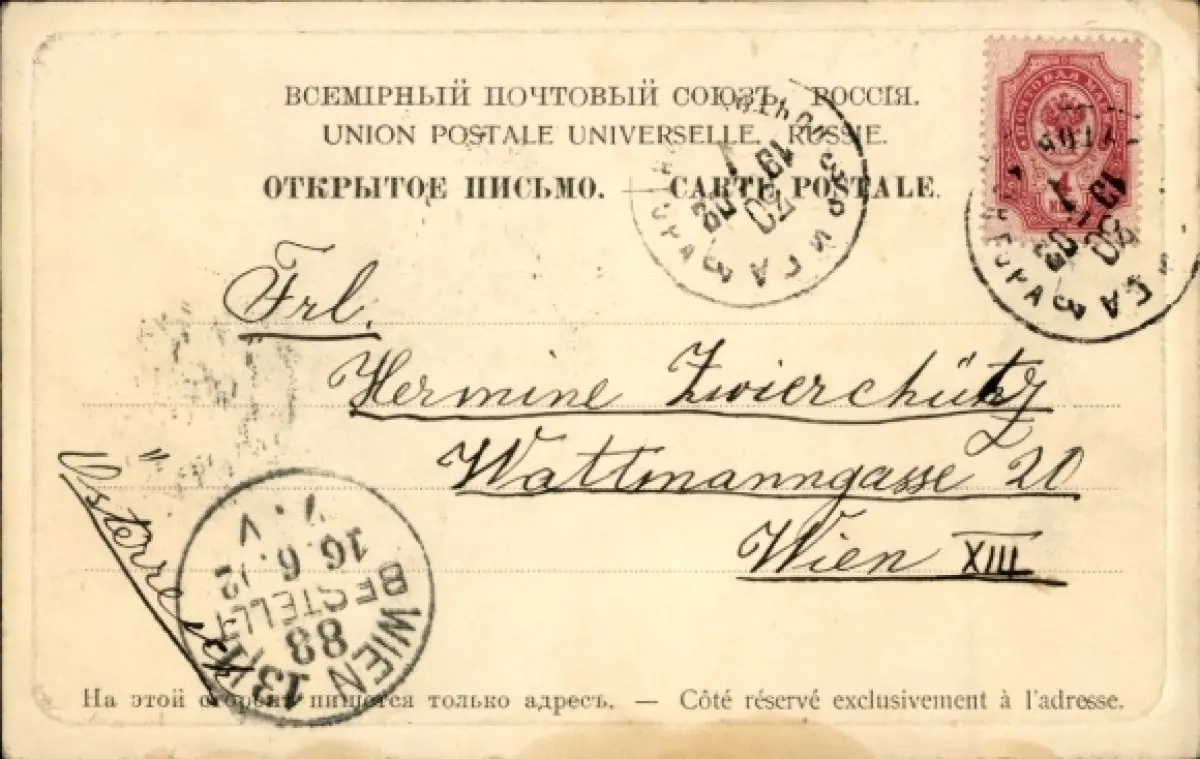 ВСЕМІРНЫЙ ПОЧТОВЫЙ СОЮЗЪ. РОССІЯ.
UNION POSTALE UNIVERSELLE. RUSSIE.
ОТКРЫТОЕ ПИСЬМО. — CARTE POSTALE.
Frl.
Hermine Zwierchütz
Wattmanngasse 20
Wien XIII
Österreich
WIEN 13
88
BESTELLT
16. 6. 02
На этой сторонѣ пишется только адресъ. — Côté réservé exclusivement à l'adresse.